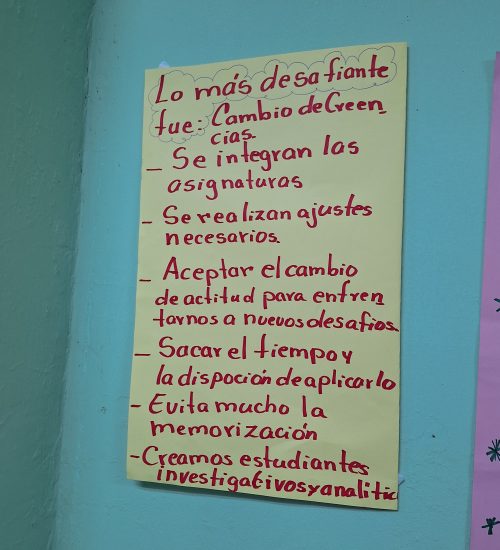 Lo más desafiante
fue: Cambio de Creen
cias.
_ Se integran las
asignaturas
- Se realizan ajustes
necesarios.
- Aceptar el cambio
de actitud para enfren
tarnos a nuevos desafios.
- Sacar el tiempo y
la dispoción de aplicarlo
- Evita mucho la
memorización
- Creamos estudiantes
investigativos y analitic